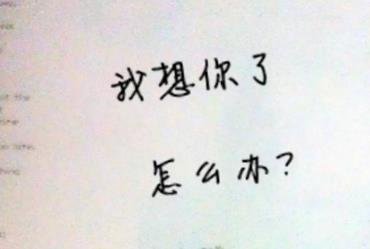 我想你了
怎么办?